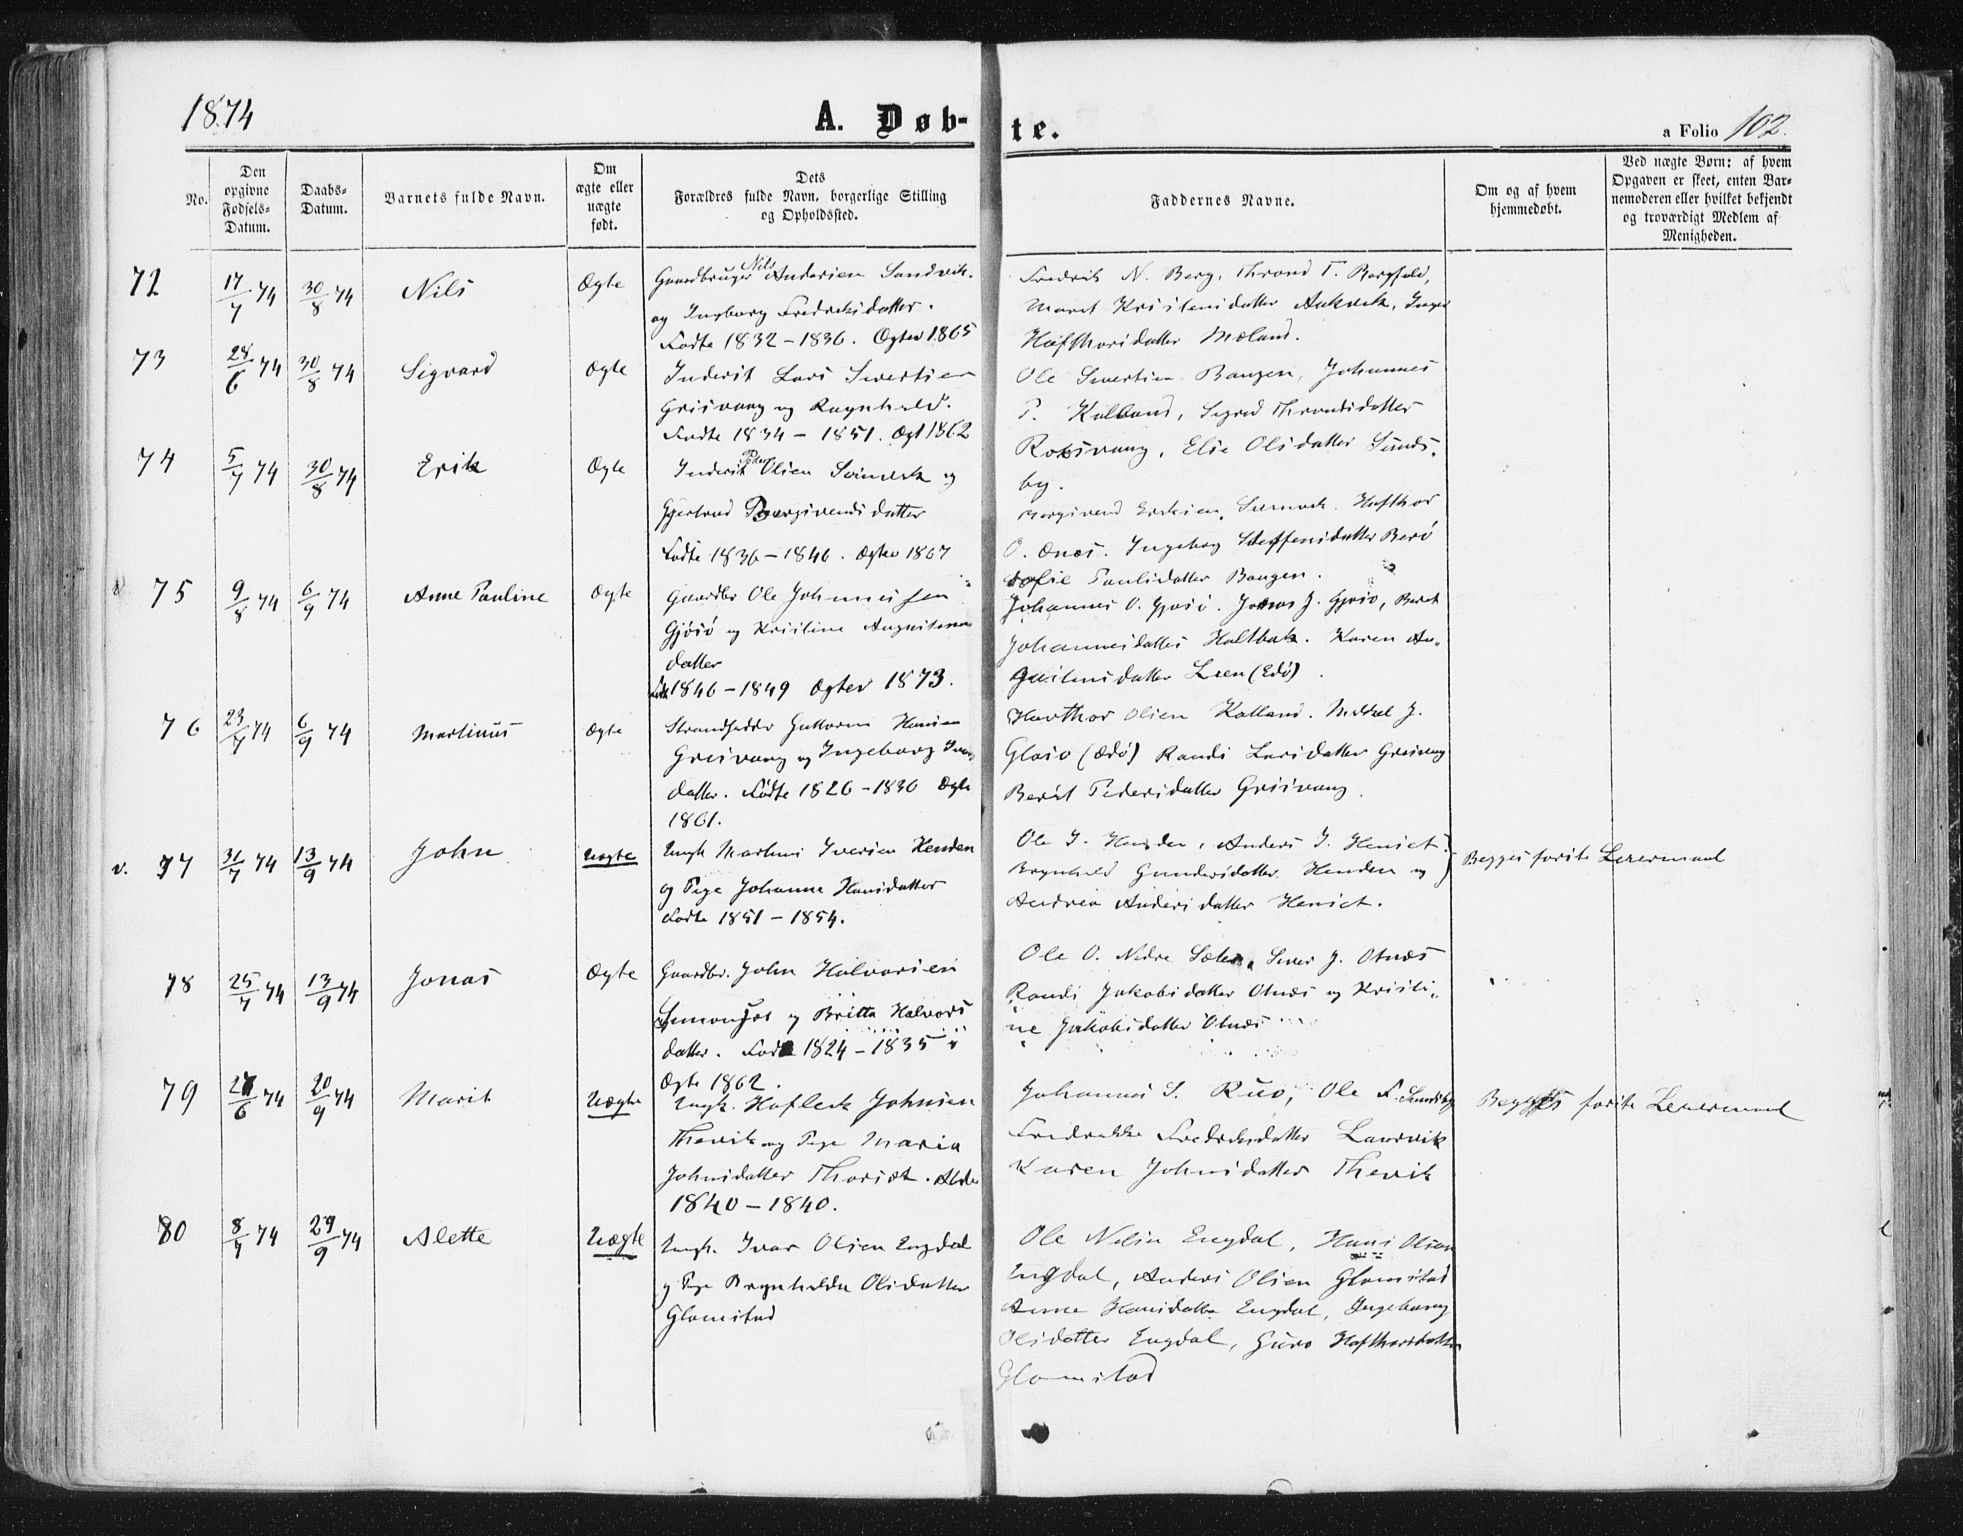 1874
A. Døb-
te.
a Folio 102.
No.
Den opgivne Fødsels-Datum.
Daabs-Datum.
Barnets fulde Navn.
Om ægte eller uægte født.
Dets Forældres fulde Navn, borgerlige Stilling og Opholdssted.
Faddernes Navne.
Om og af hvem hjemmedøbt.
Ved uægte Børn: af hvem Opgaven er skeet, enten Barnemoderen eller hvilket bekjendt og troværdigt Medlem af Menigheden.
72 17/7 74 30/8 74 Nils Ægte
Gaardbruger Nils Andersen Sandvik.
og Ingborg Fredriksdatter.
Fødte 1832 – 1836. Ægtev 1865
Fredrik N. Berg, Thrond T.
Marit Kristensdatter Aukvik, Inger
Hafthorsdatter Mæland.
73 28/6 74 30/8 74 Sigvard Ægte
Inderst Lars Sivertsen
Grisvaag og Ragnhild.
Fødte 1834 – 1851. Ægt 1862
Ole Sivertsen Baugen, Johannes
P. Kalland, Sigrid Throndsdatter
Roksvaag, Elie Olsdatter Sunds-
by.
74 5/7 74 30/8 74 Erik Ægte
Inderst Peder Olsen og
Gjertrud datter
Fødte 1836 – 1846. Ægtev 1867
Eriksen. Hafthor
O. Ænes. Ingeborg Steffensdatter Berø
Paulsdatter Baugen.
75 9/8 74 6/9 74 Anne Pauline Ægte
Gaardbr Ole Johannessen
Gjøsø og Kristine
datter
Født 1846 – 1849 Ægtev 1873.
Johannes O. Gjøsø. Jonas J. Gjøsø, Berit
Johannesdatter Holtbak. Karen Au-
gustensdatter Leen (Edø).
76 23/7 74 6/9 74 Martinus Ægte
Strandsidder Guttorm Hansen
Grisvaag og Ingeborg
datter. Fødte 1826 – 1830 Ægte
1861.
Havthor Olsen Kalland. Mikkel J.
Glasø (Ædø) Randi Larsdatter Grisvaag
Berit Pedersdatter Grisvaag.
v. 77 31/7 74 13/9 74 John Uægte
Ungk Martinus Iversen Henden
og Pige Johanne Hansdatter
Fødte 1851 – 1854.
Ole I. Henden, Anders J. Henset.
Brynhild Gundersdatter Henden og
Andrea Andersdatter Henset.
Begges første Leiermaal
78 25/7 74 13/9 74 Jonas Ægte
Gaardbr. John Halvorsen
og Britta Halvors
datter. Fødte 1824 – 1835
Ægte 1862.
Ole O. Nedre Sæter, Siver J. Otnæs
Randi Jakobsdatter Otnæs og Kristi-
ne Jakobsdatter Otnæs
79 27/6 74 20/9 74 Marit Uægte
Ungk. Johnsen
Thevik og Pige Maria
Johnsdatter
1840 – 1840.
Johannes S. Ruø, Ole F. Sundsby
Fredrikke Fredriksdatter Laurvik
Karen Johnsdatter Thevik
Begges første Leiermaal
80 8/7 74 29/9 74 Alette Uægte
Ungk. Ivar Olsen Engdal
og Pige Brynhilda Olsdatter
Glamstad
Ole Nelsen Engdal, Hans Olsen
Engdal, Anders Olsen Glamstad
Anne Hansdatter Engdal, Ingeborg
Olsdatter Engdal, Guro Hafthorsdatter
Glamstad